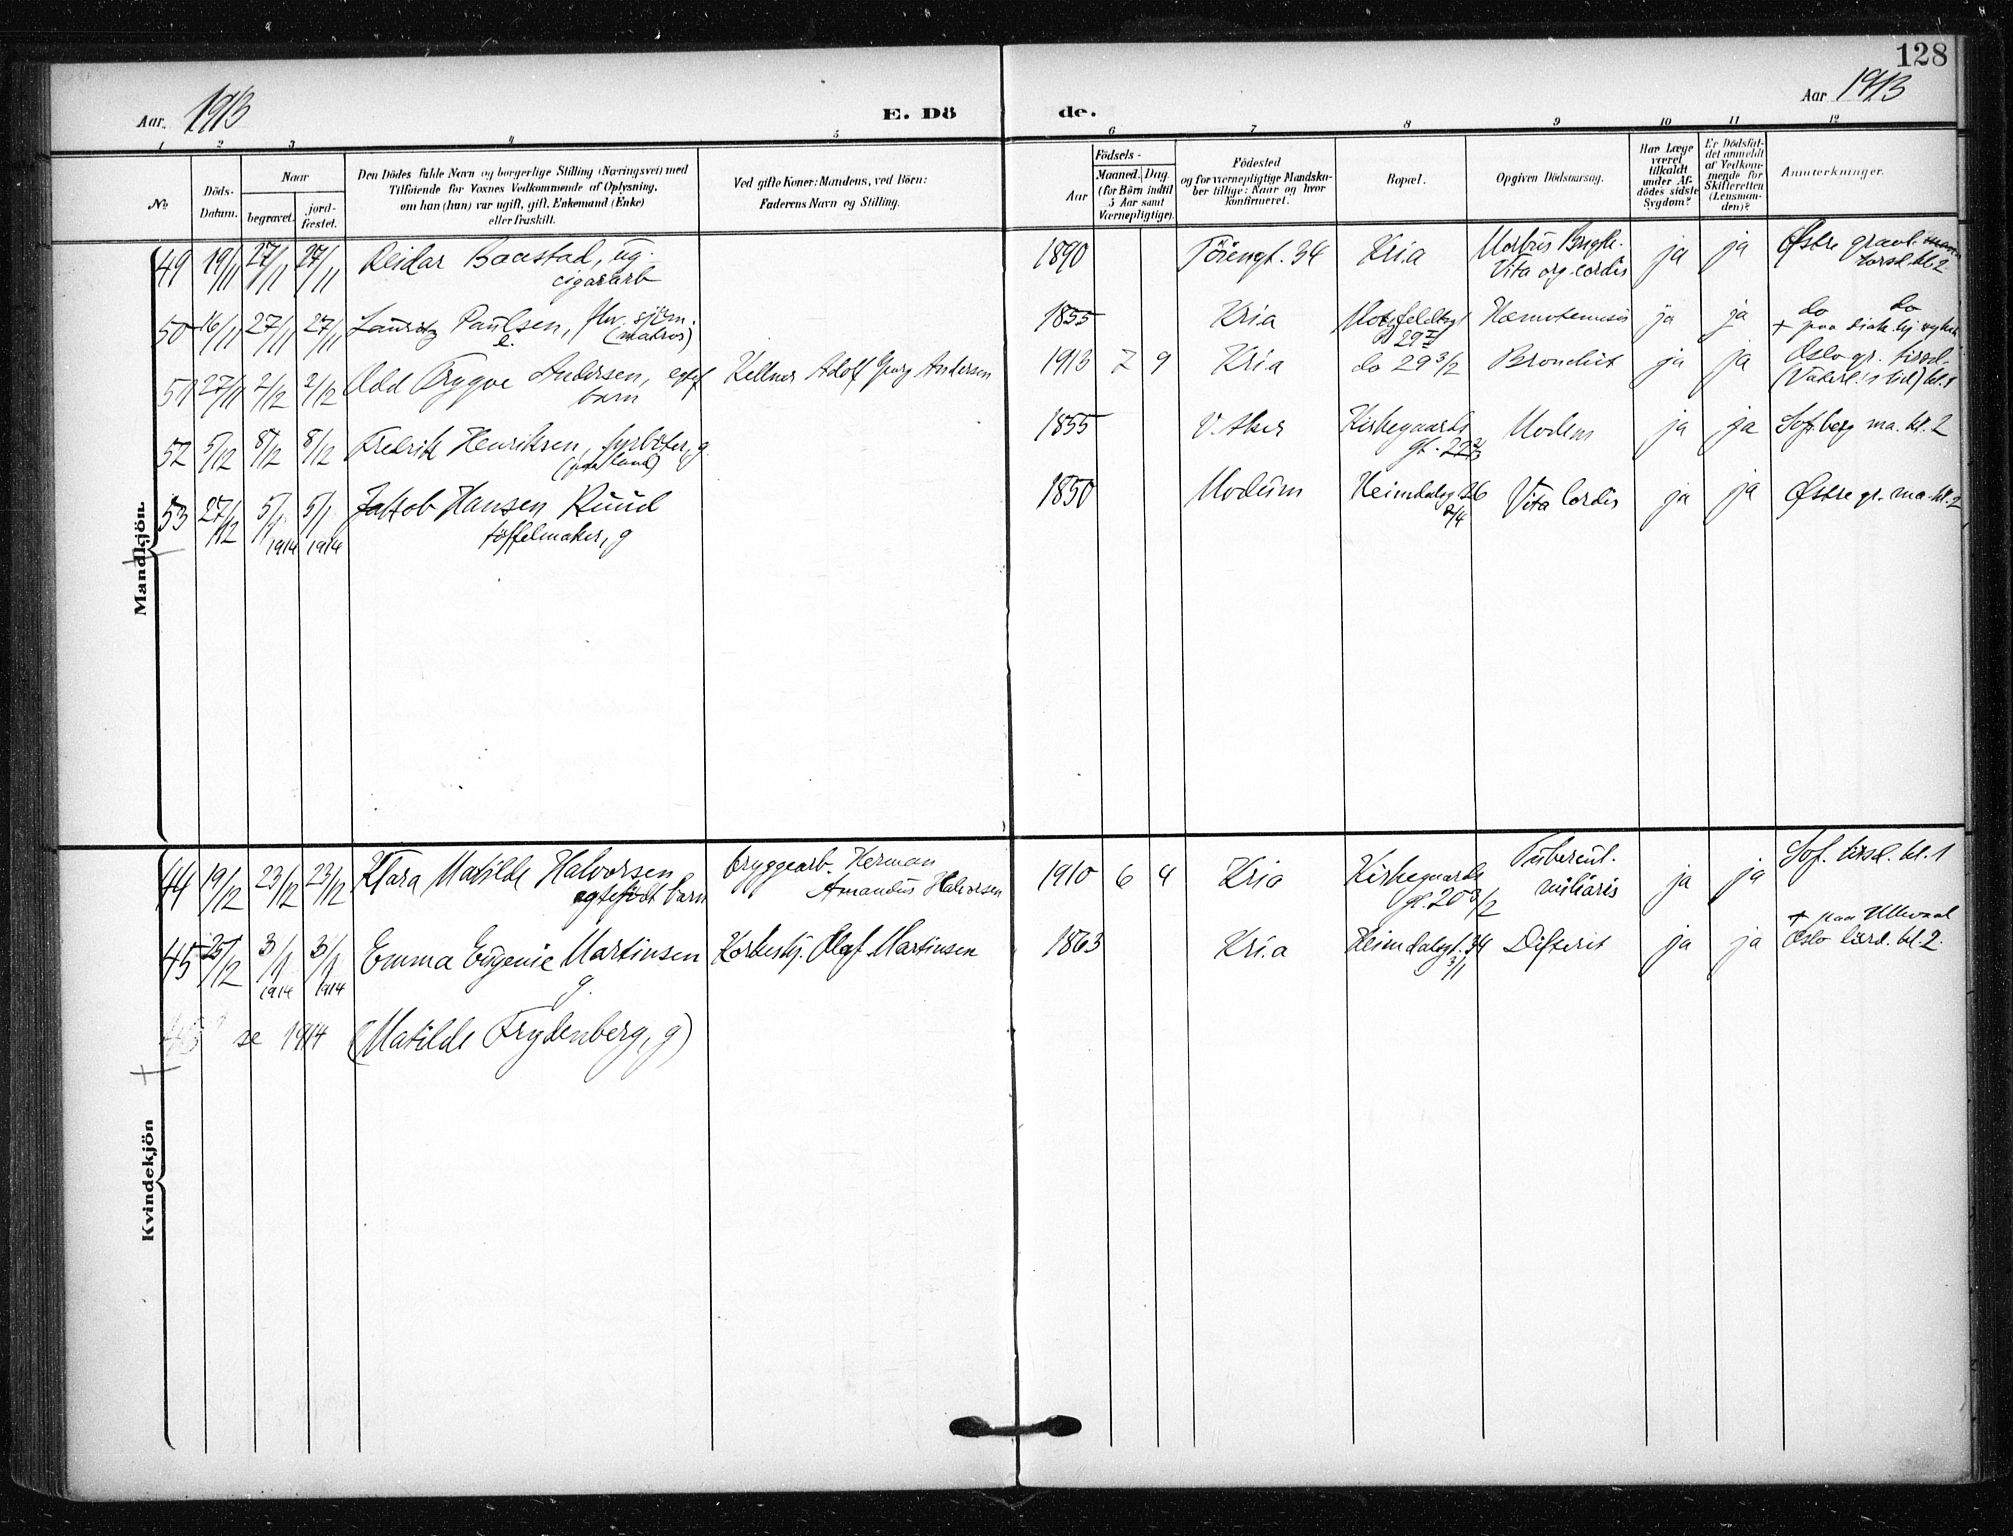 128
Aar. 1913
E. Dö de.
Aar 1913
1 2 3 4 5 6 7 8 9 10 11 12
No.
Döds-Datum.
Naar
begravet.
jord-fæstet.
Den Dödes fulde Navn og borgerlige Stilling (Næringsvei) med
Tilföiende for Voxnes Vedkommende af Oplysning,
om han (hun) var ugift, gift, Enkemand (Enke)
eller fraskilt.
Ved gifte Koner: Mandens, ved Börn:
Faderens Navn og Stilling.
Födsels-
Aar
Maaned. Dag
(for Börn indtil
5 Aar samt
Værnepligtige).
Födested
og for værnepligtige Mandska-
ber tillige: Naar og hvor
konfirmeret.
Bopæl.
Opgiven Dödsaarsag.
Har Læge
været
tilkaldt
under Af-
dödes sidste
Sygdom?
Er Dödsfal-
det anmeldt
af Vedkom-
mende for
Skifteretten
(Lensman-
den)?
Anmærkninger.
Mandkjön.
49 19/11 27/11 27/11 Reidar Baastad, ug. 1890 34 Kria Morbus ja ja Østre gravl.
cigararb Vita org. cordis torsd. kl. 2
50 16/11 27/11 27/11 Lauritz Paulsen, fhv. sjöm. 1855 Kria ja ja do do
e. (matros) 29 + paa
51 27/11 2/12 2/12 Odd Trygve Andersen, egtef. Kellner Adolf Georg Andersen 1913 7 9 Kria do 29 3/2 Bronchit ja ja Oslo gr. tirsd.
barn kl. 1
52 5/12 8/12 8/12 Fredrik Henriksen, fyrböter, g 1855 V. Aker Kirkegaards ja ja Sof.berg ma. kl. 2
gt. 22
53 27/12 5/1 1914 5/1 1914 Jakob Hansen Ruud 1850 Modum Heimdalsgt 26 Vita Cordis ja ja Østre gr. ma. kl. 2
töffelmaker, g 2/4
Kvindekjön
44 19/12 23/12 23/12 Klara Matilde Halvorsen bryggearb. Herman 1910 6 4 Kria Kirkegaards Tubercul. ja ja Sof. tirsd. kl. 1
egtefødt barn Amandus Halvorsen gt. 20 3/2 miliaris
45 25/12 3/1 1914 3/1 1914 Emma Eugenie Martinsen Olaf Martinsen 1863 Kria Heimdalsgt. 34 Difterit ja ja + paa Ullevaal
g. 3/1 Oslo lörd. kl. 2.
se 1914 (Matilde Frydenberg, g)